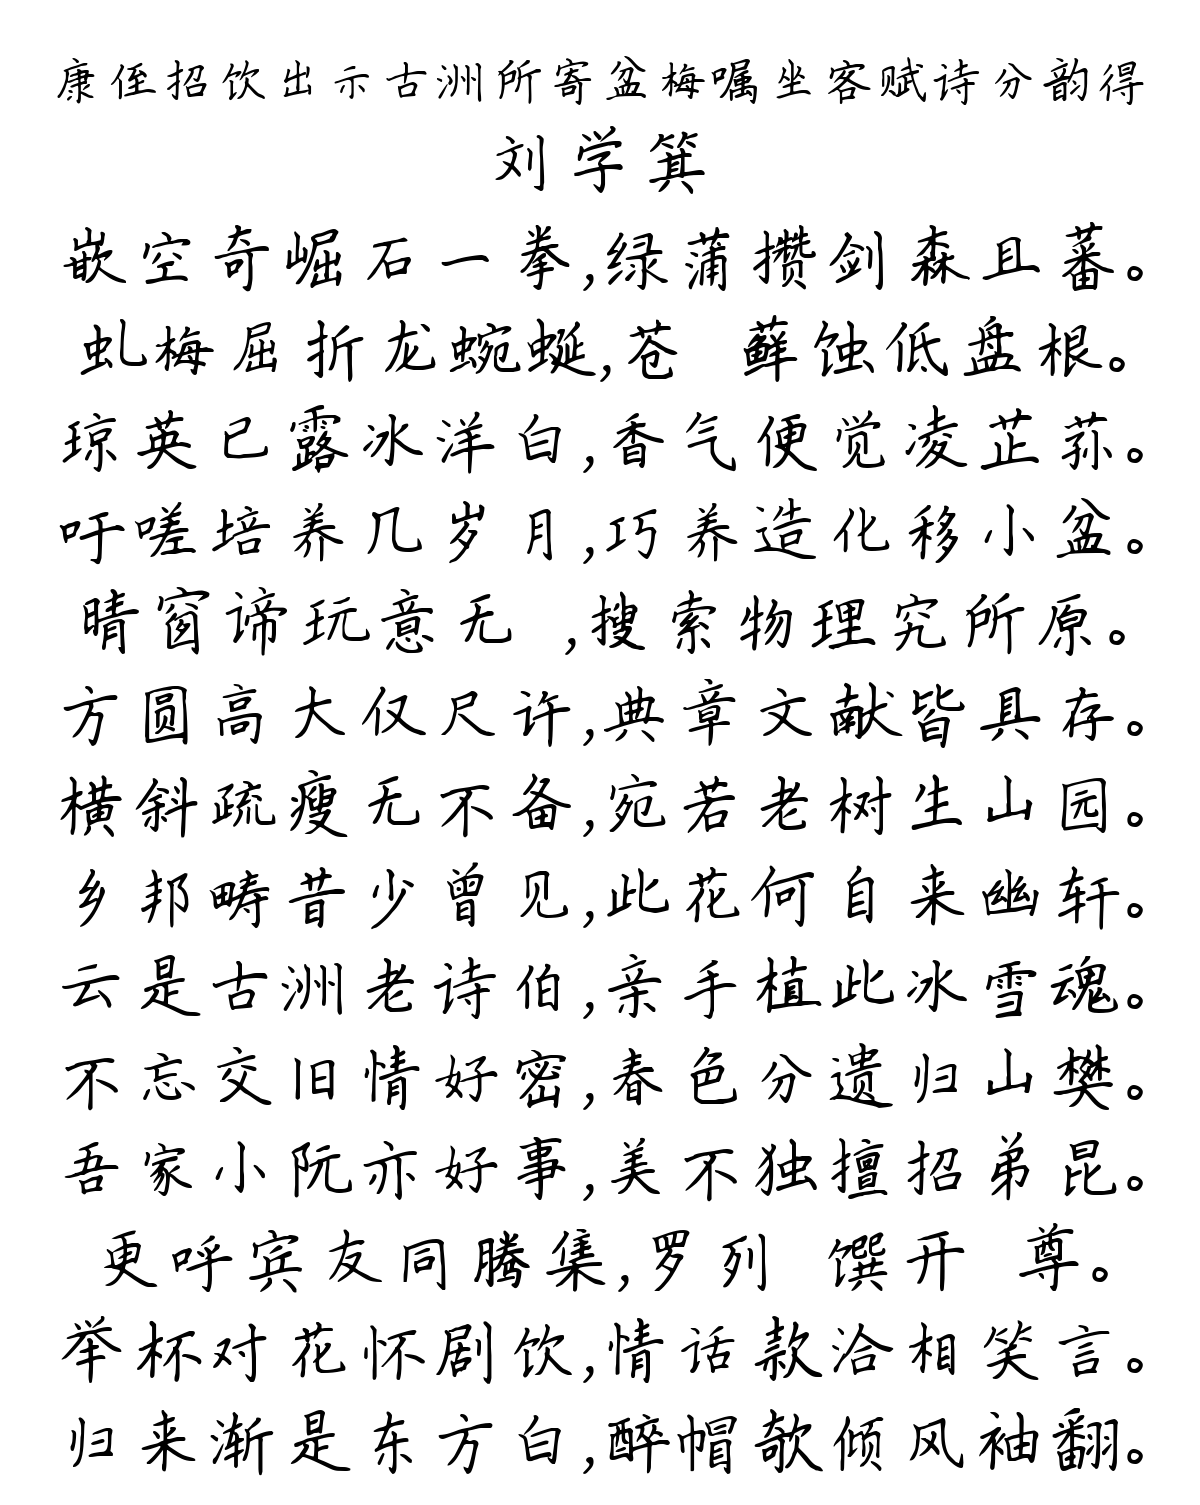 康侄招饮出示古洲所寄盆梅嘱坐客赋诗分韵得
刘学箕
嵌空奇崛石一拳,绿蒲攒剑森且蕃。
虬梅屈折龙蜿蜒,苍 藓蚀低盘根。
琼英已露冰洋白,香气便觉凌芷荪。
吁嗟培养几岁月,巧养造化移小盆。
晴窗谛玩意无 ,搜索物理究所原。
方圆高大仅尺许,典章文献皆具存。
横斜疏瘦无不备,宛若老树生山园。
乡邦畴昔少曾见,此花何自来幽轩。
云是古洲老诗伯,亲手植此冰雪魂。
不忘交旧情好密,春色分遗归山樊。
吾家小阮亦好事,美不独擅招弟昆。
更呼宾友同腾集,罗列 馔开 尊。
举杯对花怀剧饮,情话款洽相笑言。
归来渐是东方白,醉帽欹倾风袖翻。